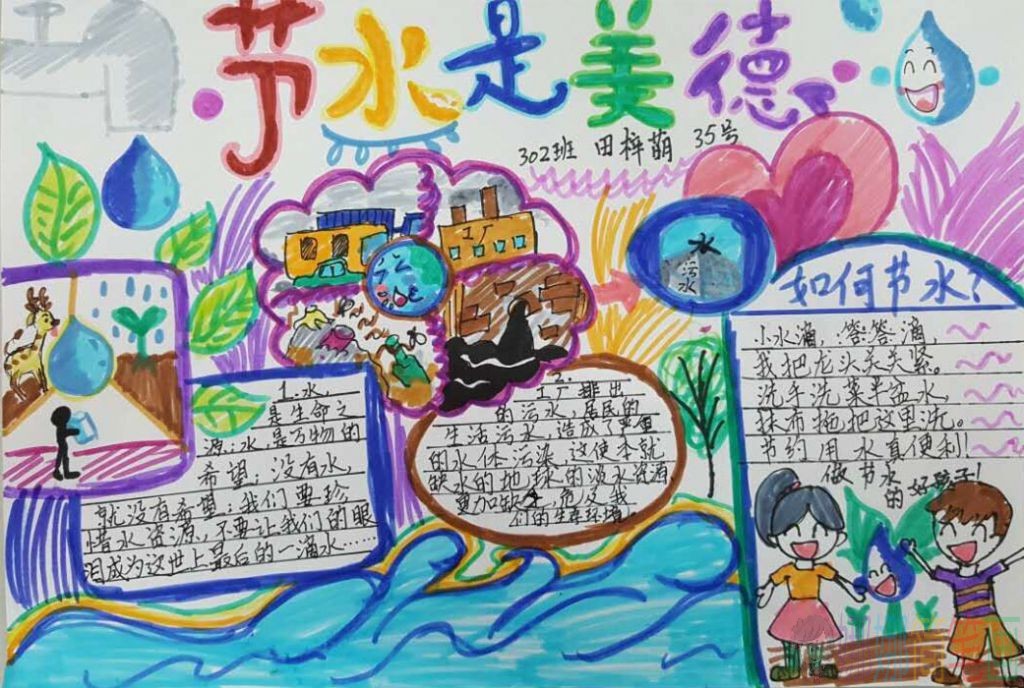 节水是美德
302班 田梓萌 35号
工厂
水
污水
如何节水?
小水滴,答答滴,
我把龙头关关紧。
洗手洗菜半盆水,
抹布拖把这里洗。
节约用水真便利!
做节水
的好孩子!
1.水,
是生命之
源;水是万物的
希望;没有水,
就没有希望;我们要珍
惜水资源,不要让我们的眼
泪成为这世上最后的一滴水……
2.
工厂排出
的污水,居民的
生活污水,造成了严重
的水体污染,这使本就
缺水的地球的淡水资源
更加缺乏,危及我
们的生存环境。